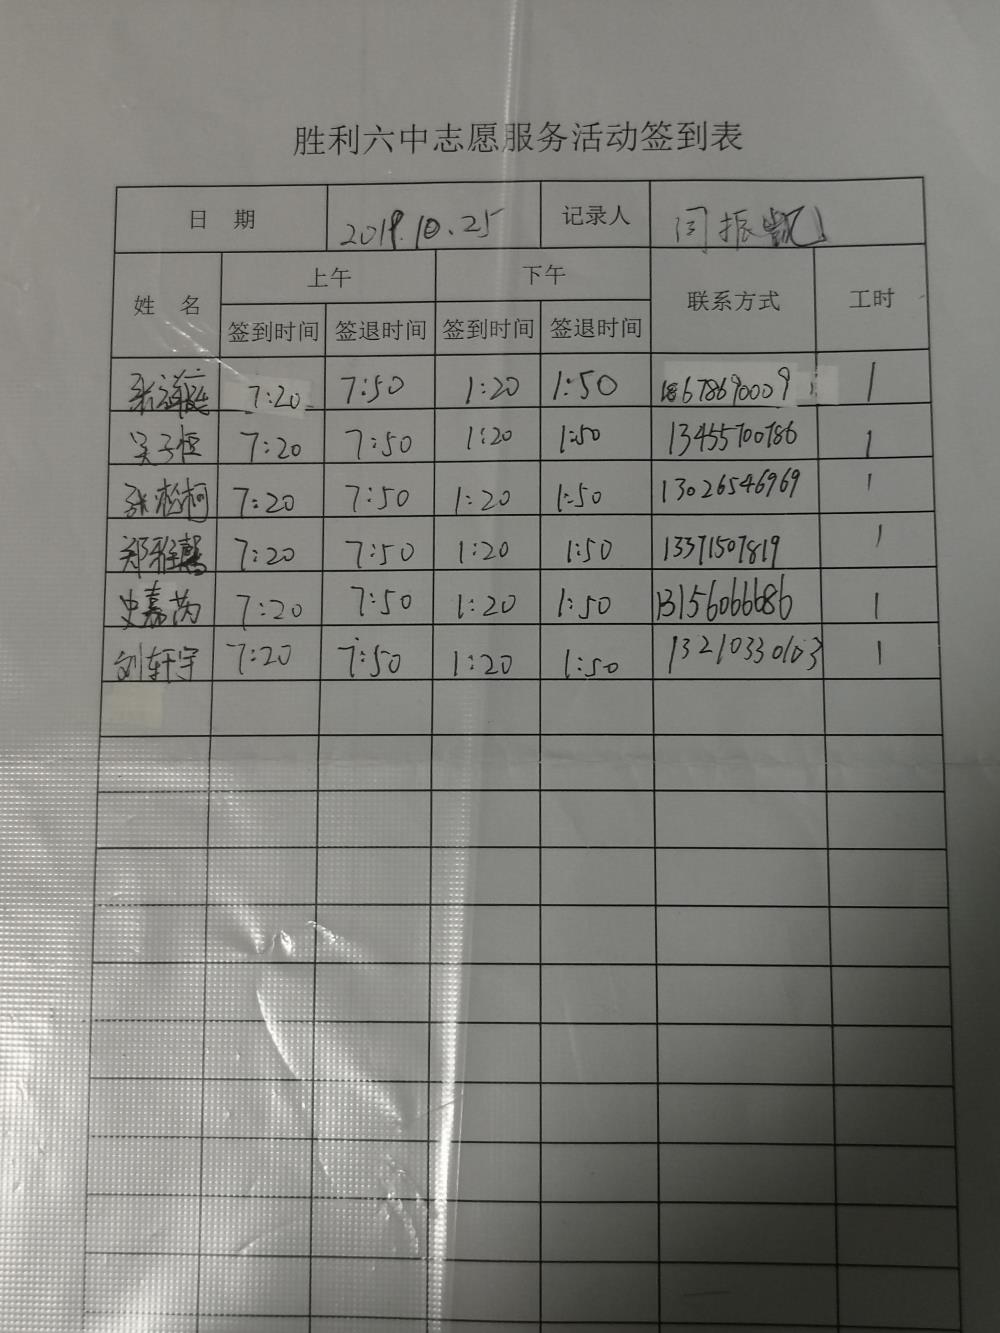 胜利六中志愿服务活动签到表
日 期 2019.10.25 记录人 闫振凯
姓 名 上午 下午 联系方式 工时
签到时间 签退时间 签到时间 签退时间
7:20 7:50 1:20 1:50 18678690009 1
吴子恒 7:20 7:50 1:20 1:50 13455700786 1
张柯 7:20 7:50 1:20 1:50 13026546969 1
郑雅馨 7:20 7:50 1:20 1:50 13371507819 1
史嘉芮 7:20 7:50 1:20 1:50 13156066686 1
刘轩宇 7:20 7:50 1:20 1:50 13210330103 1